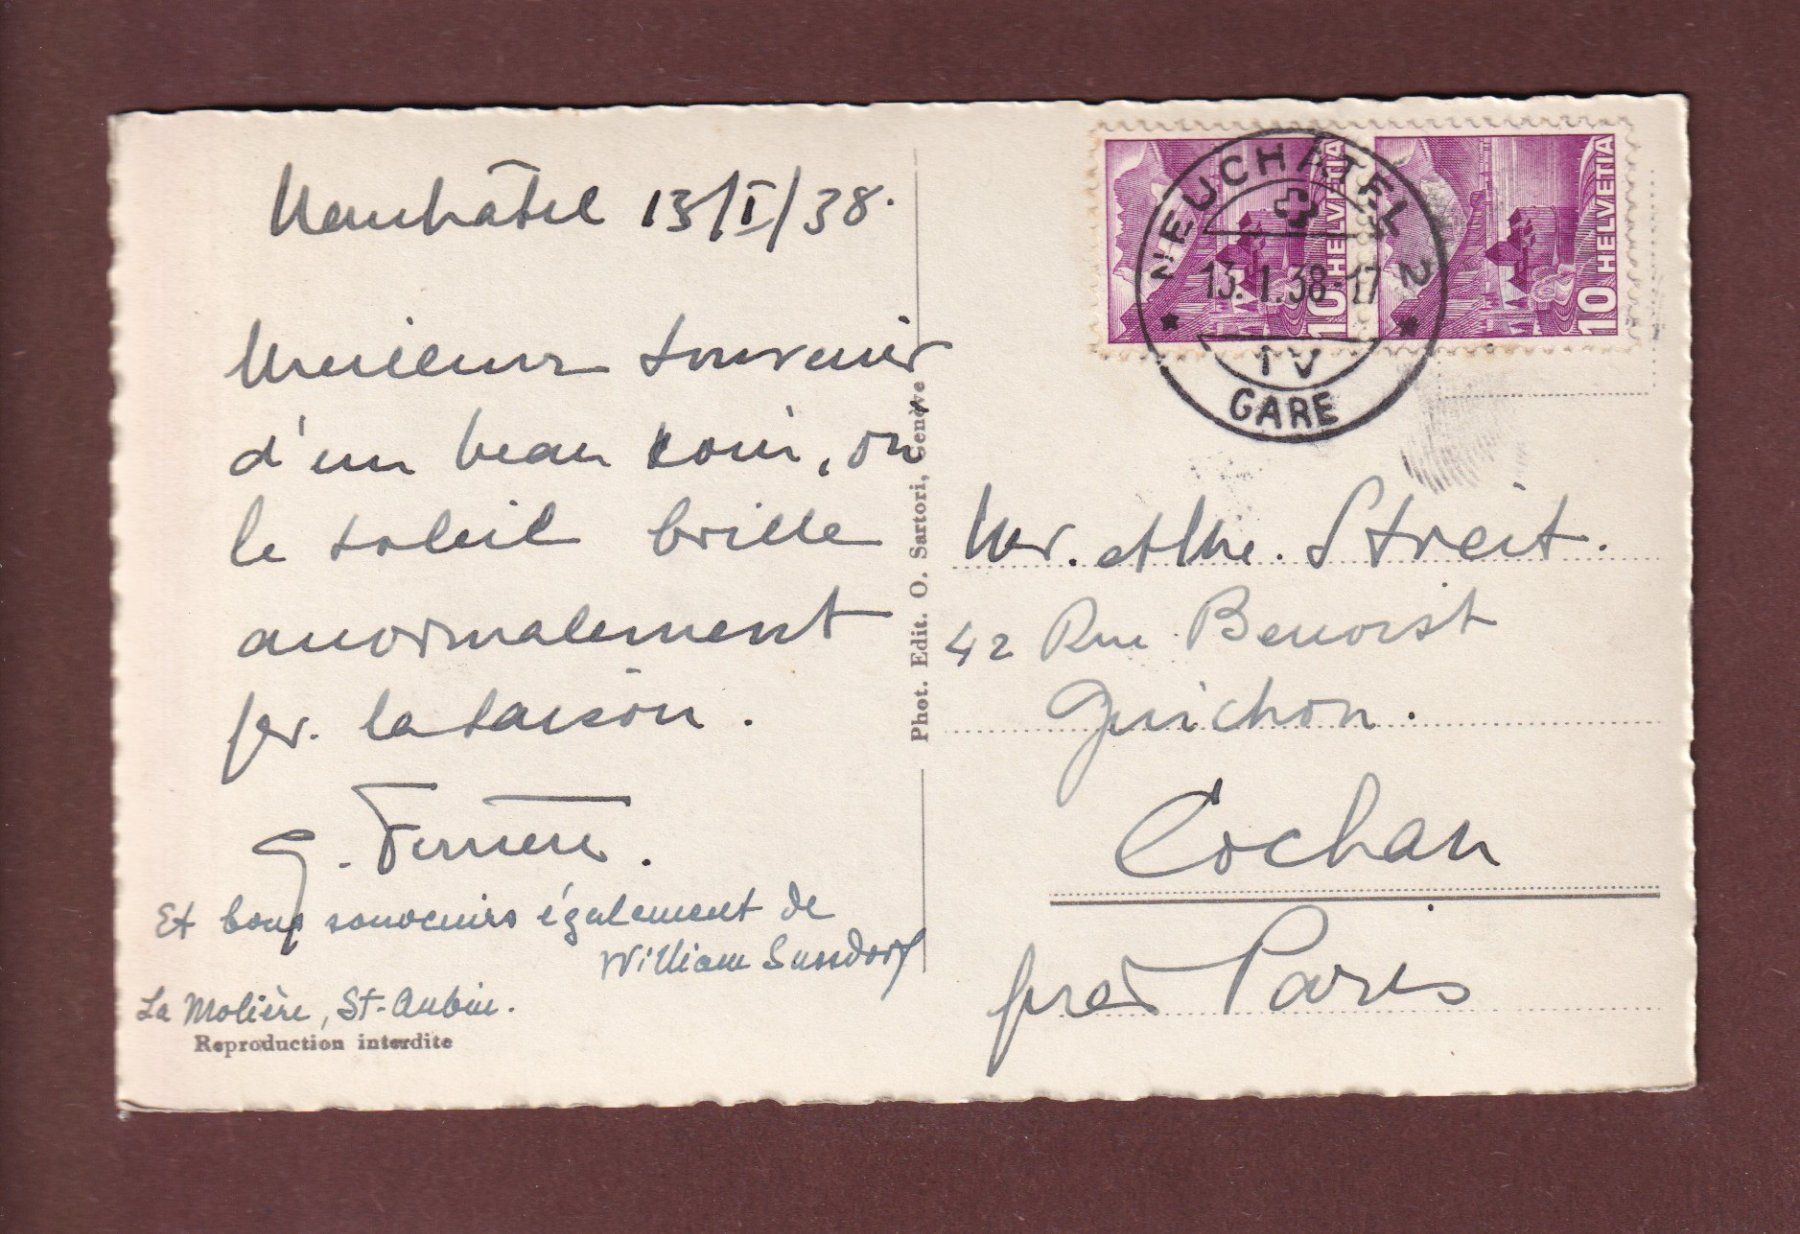 Neuchâtel 13/I/38.
Meilleur souvenir
d'un beau coin, où
le soleil brille
anormalement
pr. la saison.
G. Ferrière.
Et bons souvenirs également de
William
La Molière, St-Aubin.
Reproduction interdite
Phot. Edit. O. Sartori, Genève
10 HELVETIA
10 HELVETIA
NEUCHÂTEL 2
13.I.38-17
IV
GARE
Mr. et Me. Streit.
42 Rue Benoist
Guichon.
Cochan
près Paris